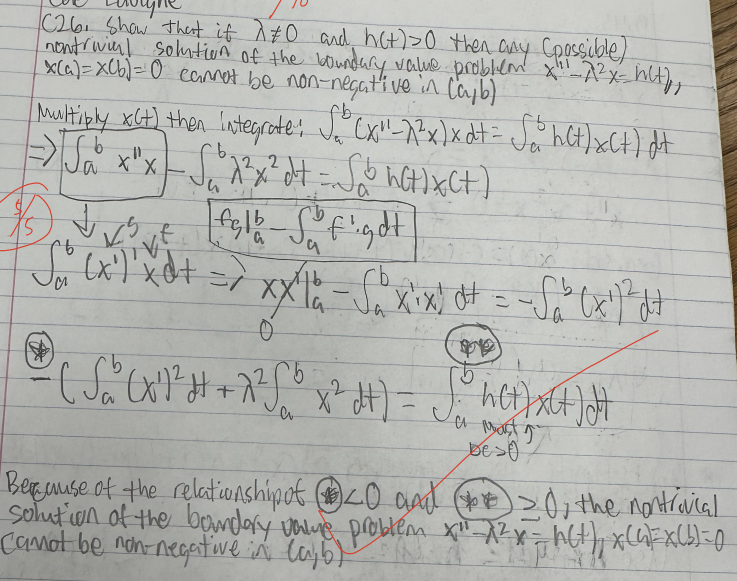 /10
C26. Show that if λ≠0 and h(t)>0 then any (possible)
nontrivial solution of the boundary value problem x''-λ²x=h(t),
x(a)=x(b)=0 cannot be non-negative in (a,b)
Multiply x(t) then integrate: ∫ₐᵇ (x''-λ²x)x dt = ∫ₐᵇ h(t)x(t) dt
⇒ ∫ₐᵇ x''x - ∫ₐᵇ λ²x² dt = ∫ₐᵇ h(t)x(t)
5/5
fg|ₐᵇ - ∫ₐᵇ f'·g dt
g' f
∫ₐᵇ (x')' x dt ⇒ xx'|ₐᵇ - ∫ₐᵇ x'·x' dt = -∫ₐᵇ (x')² dt
0
(*) (**)
-(∫ₐᵇ (x')² dt + λ²∫ₐᵇ x² dt) = ∫ₐᵇ h(t)x(t) dt
must
be >0
Because of the relationship of (*)<0 and (**) ≥ 0, the nontrivial
solution of the boundary value problem x''-λ²x=h(t), x(a)=x(b)=0
cannot be non-negative in (a,b)